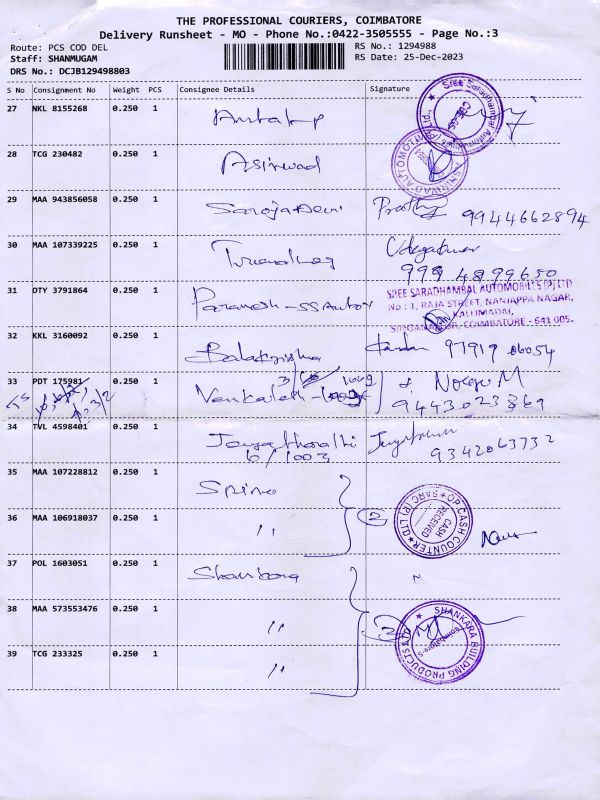 THE PROFESSIONAL COURIERS, COIMBATORE
Delivery Runsheet - MO - Phone No.:0422-3505555 - Page No.:3
Route: PCS COD DEL
RS No.: 1294988
Staff: SHANMUGAM
RS Date: 25-Dec-2023
DRS No.: DCJB129498803
S No Consignment No Weight PCS Consignee Details Signature
27 NKL 8155268 0.250 1
28 TCG 230482 0.250 1 Asirwad
29 MAA 943856058 0.250 1 SarojaDevi 9944662894
30 MAA 107339225 0.250 1
31 DTY 3791864 0.250 1 Paramesh - SS Autos
SREE SARADHAMBAL AUTOMOBILES (P) LTD
No : 1, RAJA STREET, NANJAPPA NAGAR,
KALLIMADAI,
SINGANALLUR, COIMBATORE - 641 005.
32 KKL 3160092 0.250 1 Balakrishna 97919 06054
33 PDT 175981 0.250 1 Venkatesh
9443023369
34 TVL 4598401 0.250 1
6/1003 9342063732
35 MAA 107228812 0.250 1
36 MAA 106918037 0.250 1 " 2
OP CASH COUNTER
SARC (P) LTD
CASH
RECEIVED
37 POL 1603051 0.250 1
38 MAA 573553476 0.250 1 " 3
SHANKARA BUILDING PRODUCTS LTD
39 TCG 233325 0.250 1 "